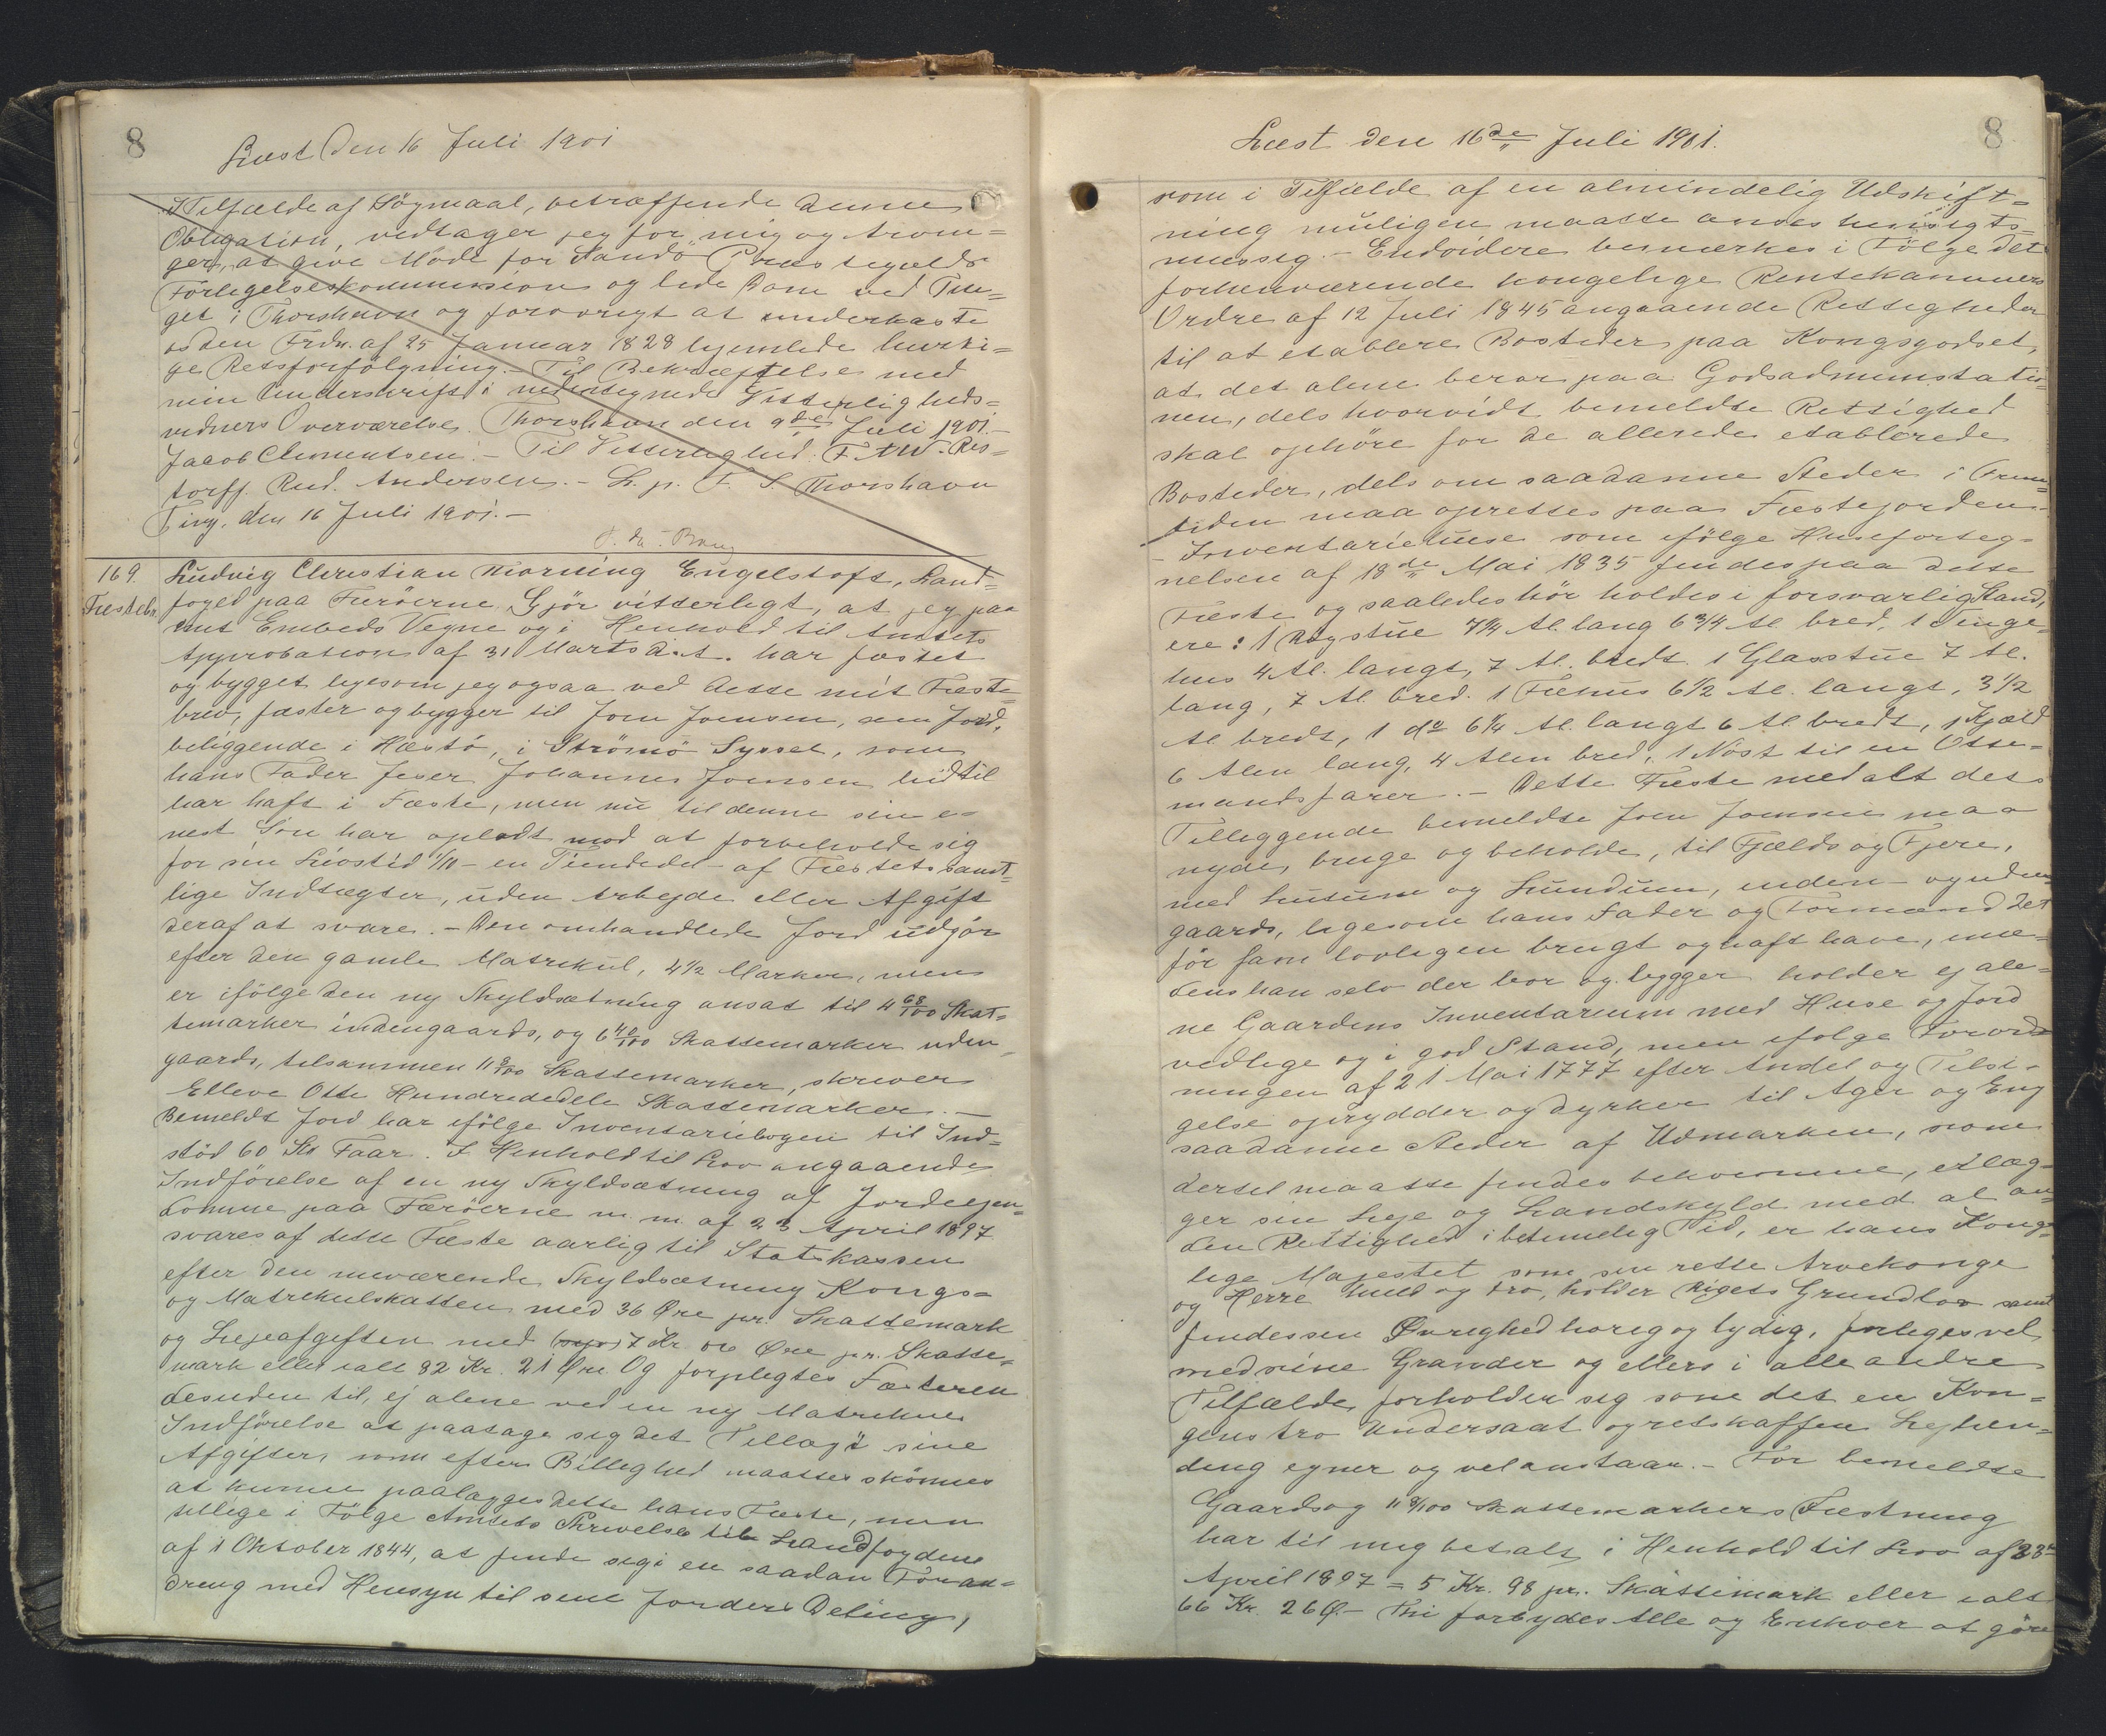 8
Læst Den 16 Juli 1901
I Tilfælde af Søgmaal, betræffende denne
Obligation, vedtager jeg for mig og Arvin=
ger, at give Møde for Sandö Præstegjælds
Forligelseskommission og lide Dom ved Tin=
get i Thorshavn og forøvrigt at underkaste
os den Frdn. af 25 Januar 1828 hjemlede hurti=
ge Retsforfølgning. Til Bekræftelse med
min Underskrift i nedentegnede Vitterligheds=
vidners Overværelse. Thorshavn den 9de Juli 1901.-
Jacob Clementsen. - Til Vitterlighed: Res=
torff. Rud. Andersen. - L. p. F. S. Thorshavn
Ting, den 16 Juli 1901.-
169.
Fæstebr.
Ludvig Christian Thorning Engelstoft, Land=
foged paa Færöerne, Gjör vitterligt, at jeg paa
mit Embeds Vegne og i Henhold til Amtets
Approbation af 31 Marts d. A. har fæstet
og bygget ligesom jeg ogsaa ved dette mit Fæste=
brev, fæster og bygger til Joen Joensen, den Jord,
beliggende i Hestö, i Strömö Syssel, som
hans Fader Johannes Joensen hidtil
har haft i Fæste, men nu til denne sin e=
nest Sön har opladt mod at forbeholde sig
for sin Livstid 1/10 - en Tiendedel - af Fæstets samt=
lige Indtægter, uden Arbejde eller Afgift
deraf at svare. - Den omhandlede Jord udgjör
efter den gamle Matrikul, 4 1/2 Marker, men
er ifölge den ny Skyldsætning ansat til 4 68/100 Skat=
temarker indengaards, og 6 40/100 Skattemarker uden=
gaards, tilsammen 11 8/100 Skattemarker, skriver
Elleve Otte Hundrededele Skattemarker. -
Bemeldt Jord har ifölge Inventariebogen til Ind=
stöd 60 Stk Faar. I Henhold til Lov angaaende
Indförelse af en ny Skyldsætning af Jordeejen=
domme paa Færöerne m. m. af 23 April 1897
svares af dette Fæste aarlig til Statskassen
efter den nuværende Skyldsætning Kongs=
og Matrikulskatten med 36 Øre pr. Skattemark
og Lejeafgiften med 7 Kr. Øre pr. Skatte=
mark eller ialt 82 Kr. 21 Øre. Og forpligtes Fæsteren
desuden til, ej alene ved en ny Matrikuls
Indförelse at paatage sig det Tillæg i sine
Afgifter, som efter Billighed maatte skönnes
at kunne paalægges dette hans Fæste, men
tillige i Fölge Amtets Skrivelse til Landfogden
af 1 Oktober 1844, at finde sig i en saadan Foran=
dring med Hensyn til sine Jorders Deling,
8
Læst den 16de Juli 1901.
som i Tilfælde af en almindelig Udskift=
ning muligen maatte andes hensigts=
mæssig. - Endvidere bemærkes i Fölge det
forhenværende kongelige Rentekammers
Ordre af 12 Juli 1845 angaaende Rettigheden
til at etablere Bosteder paa Kongsgodset,
at det alene beror paa Godsadministatio=
nen, dels hvorvidt bemeldte Rettighed
skal ophöre for de allerede etablerede
Bosteder, dels om saadanne Steder i Frem=
tiden maa oprettes paa Fæstejorden.
- Inventariehuse som ifölge Huseforteg=
nelsen af 18de Mai 1835 findes paa dette
Fæste og saaledes bör holdes i forsvarlig Stand,
ere: 1 Rögstue 7 3/4 Al. lang 6 3/4 Al bred, 1 Tinge=
hus 4 Al. langt, 7 Al. bredt. 1 Glasstue 7 Al.
lang, 7 Al bred. 1 Fæhus 6 1/2 Al. langt, 3 1/2
Al. bredt, 1 do 6 1/4 Al. langt 6 Al bredt, 1 Kjæld
6 Alen lang, 4 Alen bred, 1 Nöst til en Otte=
mandsfarer. - Dette Fæste med alt dets
Tilliggende bemeldte Joen Joensen maa
nyde, bruge og beholde, til Fjælds og Fjere,
med Lutum og Lundum, inden- og uden=
gaards, ligesom hans Fader og Formænd det
för ham lovligen brugt og haft have, ime=
dens han selv der bor og bygger holder ej ale=
ne Gaardens Inventarium med Huse og Jord
vedlige og i god Stand, men ifölge Forord=
ningen af 21 Mai 1777 efter Andel og Telst=
gelse oprydder og dyrker til Ager og Eng
saadanne Steder af Udmarken, som
dertil maatte findes bekvemme, erlæg=
ger sin Leje og Landskyld med al an=
den Rettighed i betimelig Tid, er hans Konge=
lige Majestet som sin rette Arvekonge
og Herre huld og tro, holder Rigets Grundlov samt
findes sin Øvrighed hörig og lydig, forliges vel
med sine Grander og ellers i alle andre
Tilfælde, forholder sig som det en Kon=
gens tro Undersaat og retskaffen Lejlæn=
ding egner og vel anstaar. - For bemeldte
Gaards og 11 8/100 Skattemarkers Fæstning
har til mig betalt i Henhold til Lov af 23de
April 1897 = 5 Kr. 98 pr. Skattemark eller ialt
66 Kr. 26 Ø. - Thi forbydes Alle og Enhver at göre